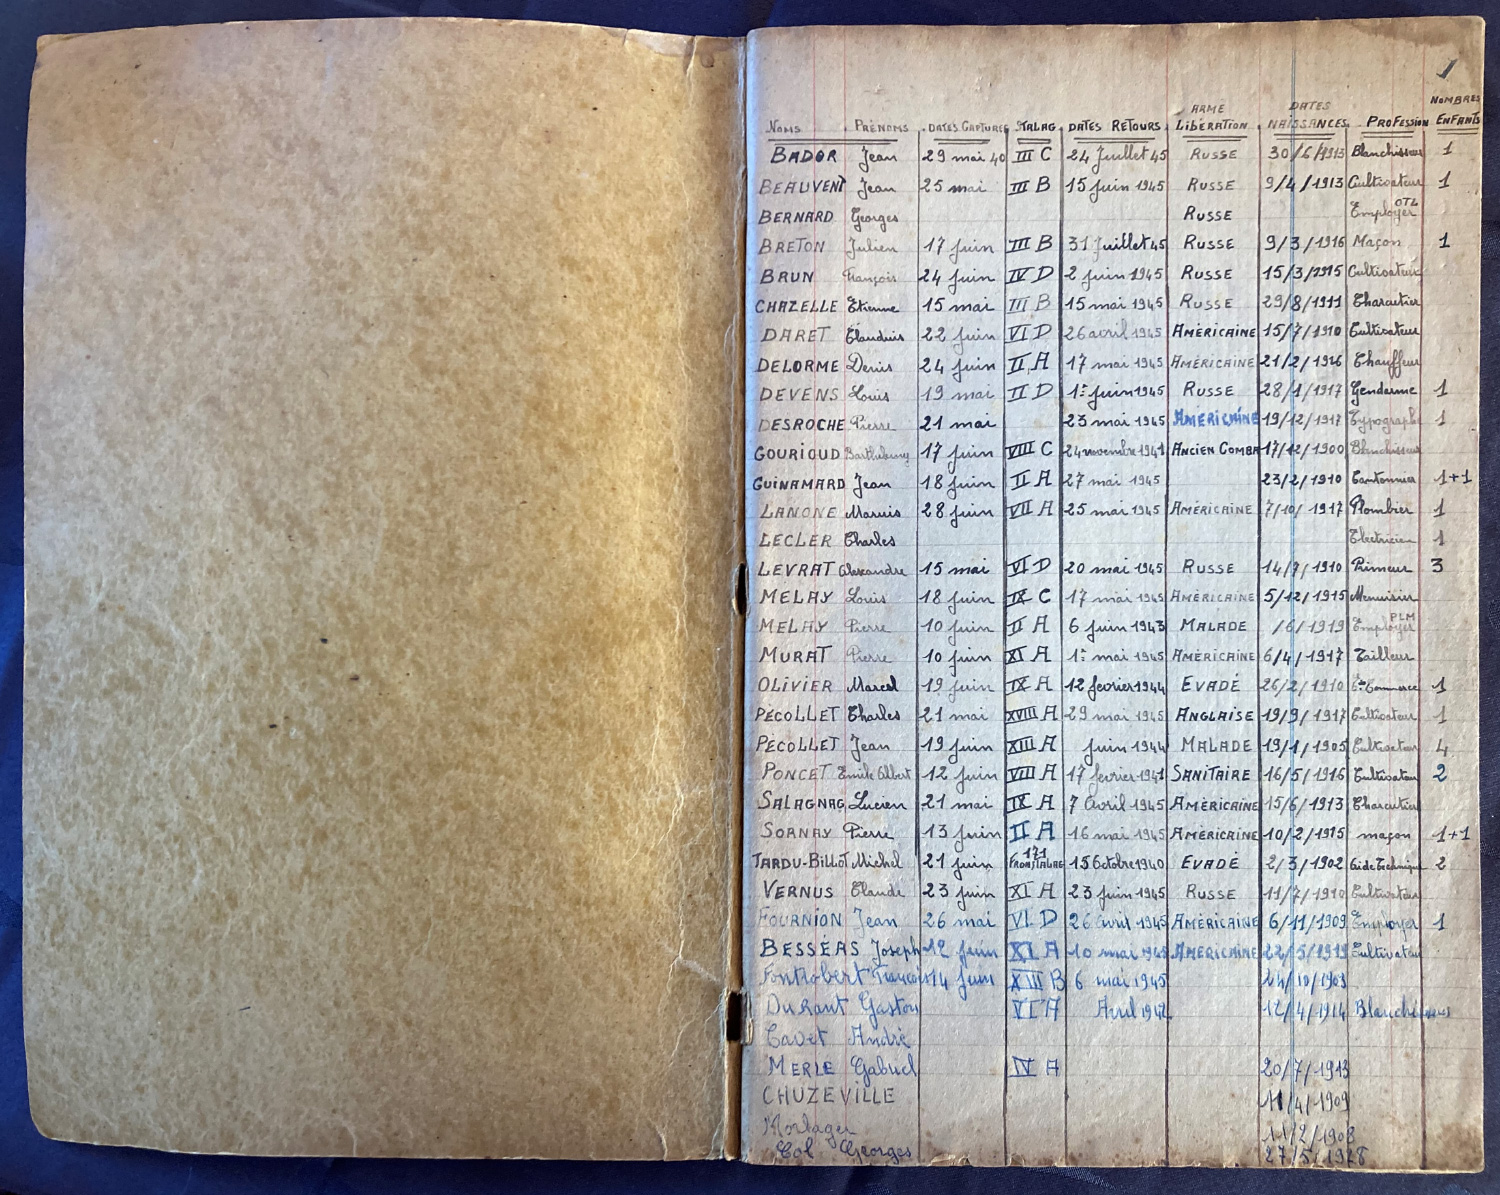 1
NOMS PRÉNOMS DATES CAPTURES STALAG DATES RETOURS ARMÉ LIBÉRATION DATES NAISSANCES PROFESSION NOMBRES ENFANTS
BADOR Jean 29 mai 40 III C 24 Juillet 45 RUSSE 30/6/1913 Blanchisseur 1
BEAUVENT Jean 25 mai III B 15 juin 1945 RUSSE 9/4/1913 Cultivateur 1
BERNARD Georges RUSSE Employer OTL
BRETON Julien 17 juin III B 31 Juillet 45 RUSSE 9/3/1916 Maçon 1
BRUN François 24 juin IV D 2 juin 1945 RUSSE 15/3/1915 Cultivateur
CHAZELLE Etienne 15 mai III B 15 mai 1945 RUSSE 29/8/1911 Charcutier
DARET Claudius 22 juin VI D 26 avril 1945 AMÉRICAINE 15/7/1910 Cultivateur
DELORME Denis 24 juin II A 17 mai 1945 AMÉRICAINE 21/2/1926 Chauffeur
DEVENS Louis 19 mai II D 1: juin 1945 RUSSE 28/1/1917 Gendarme 1
DESROCHE Pierre 21 mai 23 mai 1945 AMÉRICAINE 19/12/1917 Typographe 1
GOURIOUD Barthelemy 17 juin VIII C 24 novembre 1941 ANCIEN COMBA 17/12/1900 Blanchisseur
GUINAMARD Jean 18 juin II A 27 mai 1945 23/2/1910 Cantonnier 1+1
LANONE Marius 28 juin VII A 25 mai 1945 AMÉRICAINE 7/10/1917 Plombier 1
LECLER Charles Electricien 1
LEVRAT Alexandre 15 mai VI D 20 mai 1945 RUSSE 14/7/1910 Primeur 3
MELAY Louis 18 juin IX C 17 mai 1945 AMÉRICAINE 5/12/1915 Menuisier
MELAY Pierre 10 juin II A 6 juin 1943 MALADE /6/1919 Employer PLM
MURAT Pierre 10 juin XI A 1: mai 1945 AMÉRICAINE 6/4/1917 Tailleur
OLIVIER Marcel 19 juin IX A 12 fevrier 1944 EVADÉ 26/2/1910 Commerce 1
PÉCOLLET Charles 21 mai XVIII A 29 mai 1945 ANGLAISE 19/9/1917 Cultivateur 1
PÉCOLLET Jean 19 juin XIII A juin 1944 MALADE 19/1/1905 Cultivateur 4
PONCET Emile Albert 12 juin VIII A 17 fevrier 1941 SANITAIRE 16/5/1916 Cultivateur 2
SALAGNAG Lucien 21 mai IX A 7 Avril 1945 AMÉRICAINE 15/6/1913 Charcutier
SORNAY Pierre 13 juin II A 16 mai 1945 AMÉRICAINE 10/2/1915 maçon 1+1
TARDU-BILLOT Michel 21 juin FRONSTALAG 121 15 Octobre 1940 EVADÉ 2/3/1902 Aide Technique 2
VERNUS Claude 23 juin XI A 23 juin 1945 RUSSE 11/7/1910 Cultivateur
FOURNION Jean 26 mai VI D 26 Avril 1945 AMÉRICAINE 6/11/1909 Employer 1
BESSÉAS Joseph 12 juin XI A 10 mai 1945 AMÉRICAINE 22/5/1919 Cultivateur
Fontrobert François 14 juin XIII B 6 mai 1945 24/10/1903
Durant Gaston VI A Avril 1942 12/4/1914 Blanchisseur
Cavet André
MERLE Gabriel IV A 20/7/1913
CHUZEVILLE 11/4/1909
Morlager 11/2/1908
Col Georges 27/5/1928